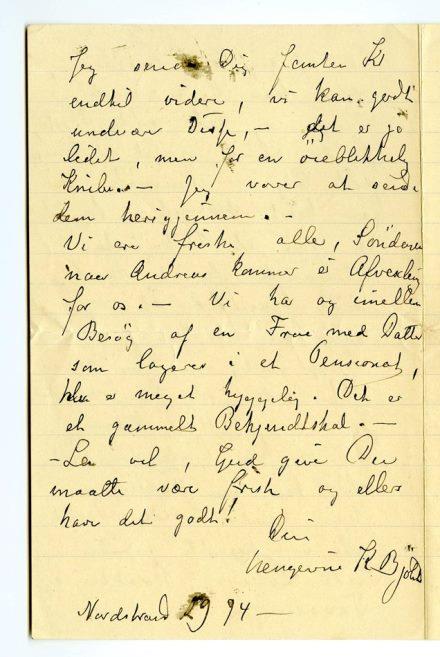 Jeg sender Dig femten Kr
endtil videre, vi kan godt
undvære Disse, – det er jo
lidet, men for en øieblikkelig
Knibe – Jeg vover at sende
dem herigjennem. –
Vi ere friske alle, Søndagen
naar Andreas kommer er Afvexling
for os. – Vi har og imellem
Besøg af en Frue med Datter
som logerer i et Pensionat,
er meget hyggelig. Det er
et gammelt Bekjendtskab. –
– Lev vel, Gud give Du
maatte være frisk og ellers
have det godt!
Din
hengivne K. Bjöl
Nordstrand 29 94 –